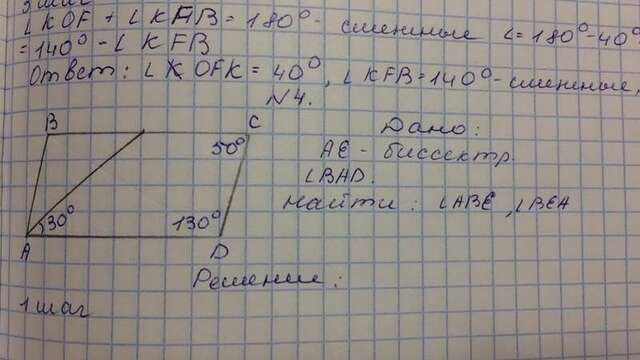 ∠KOF + ∠KFB = 180° - смежные ∠=180°-40°
= 140° - ∠KFB
Ответ: ∠KOFK = 40°, ∠KFB=140°-смежные
№4.
A
B
30°
130°
50°
D
C
Дано:
AE - биссектр.
∠BAD.
Найти: ∠ABE, ∠BEA
Решение:
1 шаг